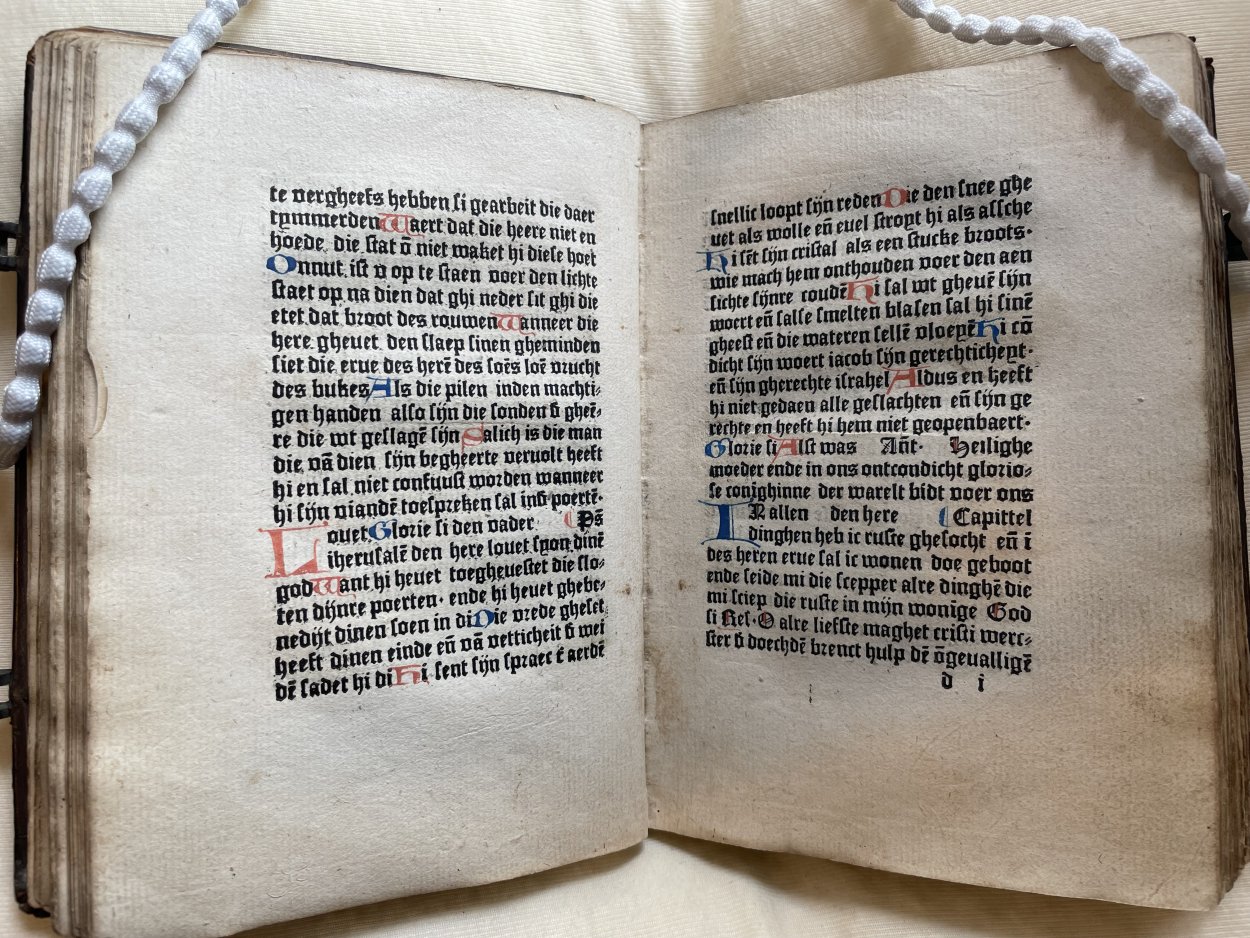 te vergheefs hebben si gearbeit die daer
tymmerden Waert dat die heere niet en
hoede. die stat ō niet waket hi diese hoet
Onnut. ist v op te staen voer den lichte
staet op na dien dat ghi neder sit ghi die
etet dat broot des rouwen Wanneer die
here gheuet den slaep sinen gheminden
siet die erue des herē des soēs loē vrucht
des bukes Als die pilen inden machti-
gen handen also sijn die sonden ẟ gheē-
re die wt geslagē sijn Salich is die man
die vā dien sijn begheerte veruolt heeft
hi en sal niet confuust worden wanneer
hi sijn viandē toespreken sal inẟ poertē.
Louet Glorie si den vader Ps̄
iherusalē den here louet syon dinē
god Want hi heuet toegheuestet die slo-
ten dijnre poerten. ende hi heuet ghebe-
nedijt dinen soen in di Die vrede gheset
heeft dinen einde eñ vā vetticheit ẟ wei
dē sadet hi di Hi sent sijn spraec t̄ aerdē
snellic loopt sijn reden Die den snee ghe
uet als wolle eñ euel stroyt hi als assche
Hi sēt sijn cristal als een stucke broots.
wie mach hem onthouden voer den aen
sichte sijnre coudē Hi sal wt gheuē sijn
woert eñ salse smelten blasen sal hi sinē
gheest eñ die wateren sellē vloeyē Hi cō
dicht sijn woert iacob sijn gerechticheyt.
eñ sijn gherechte israhel Aldus en heeft
hi niet gedaen alle geslachten eñ sijn ge
rechte en heeft hi hem niet geopenbaert.
Glorie si Alst was Añt. Heilighe
moeder ende in ons ontcondicht glorio-
se conighinne der warelt bidt voer ons
IN allen den here Capittel
dinghen heb ic ruste ghesocht eñ i
des heren erue sal ic wonen doe geboot
ende seide mi die scepper alre dinghē die
mi sciep die ruste in mijn wonige God
si Res. O alre liefste maghet cristi werc-
ster ẟ doechdē brenct hulp dē ōgeualligē
d i